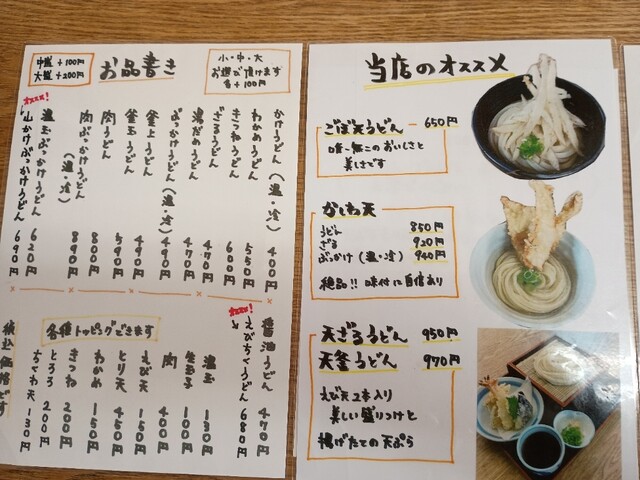 中盛 +100円
大盛 +200円
お品書き
小・中・大
お選び頂けます
各+100円
かけうどん(温・冷) 400円
わかめうどん 550円
きつねうどん 600円
ざるうどん 470円
湯だめうどん 470円
ぶっかけうどん(温・冷) 490円
釜上うどん 490円
釜玉うどん 590円
肉うどん 800円
肉ぶっかけうどん(温・冷) 890円
温玉ぶっかけうどん 620円
オススメ!
山かけぶっかけうどん 690円
醤油うどん 470円
オススメ!
えびちくうどん 680円
各種トッピングできます
温玉 130円
生玉子 100円
肉 400円
えび天 150円
とり天 450円
わかめ 150円
きつね 200円
とろろ 200円
ちくわ天 130円
税込価格です
当店のオススメ
ごぼ天うどん 650円
唯一無二のおいしさと
美しさです
かしわ天
うどん 850円
ざる 920円
ぶっかけ(温・冷) 940円
絶品!! 味付に自信あり
天ざるうどん 950円
天釜うどん 970円
えび天2本入り
美しい盛りつけと
揚げたての天ぷら